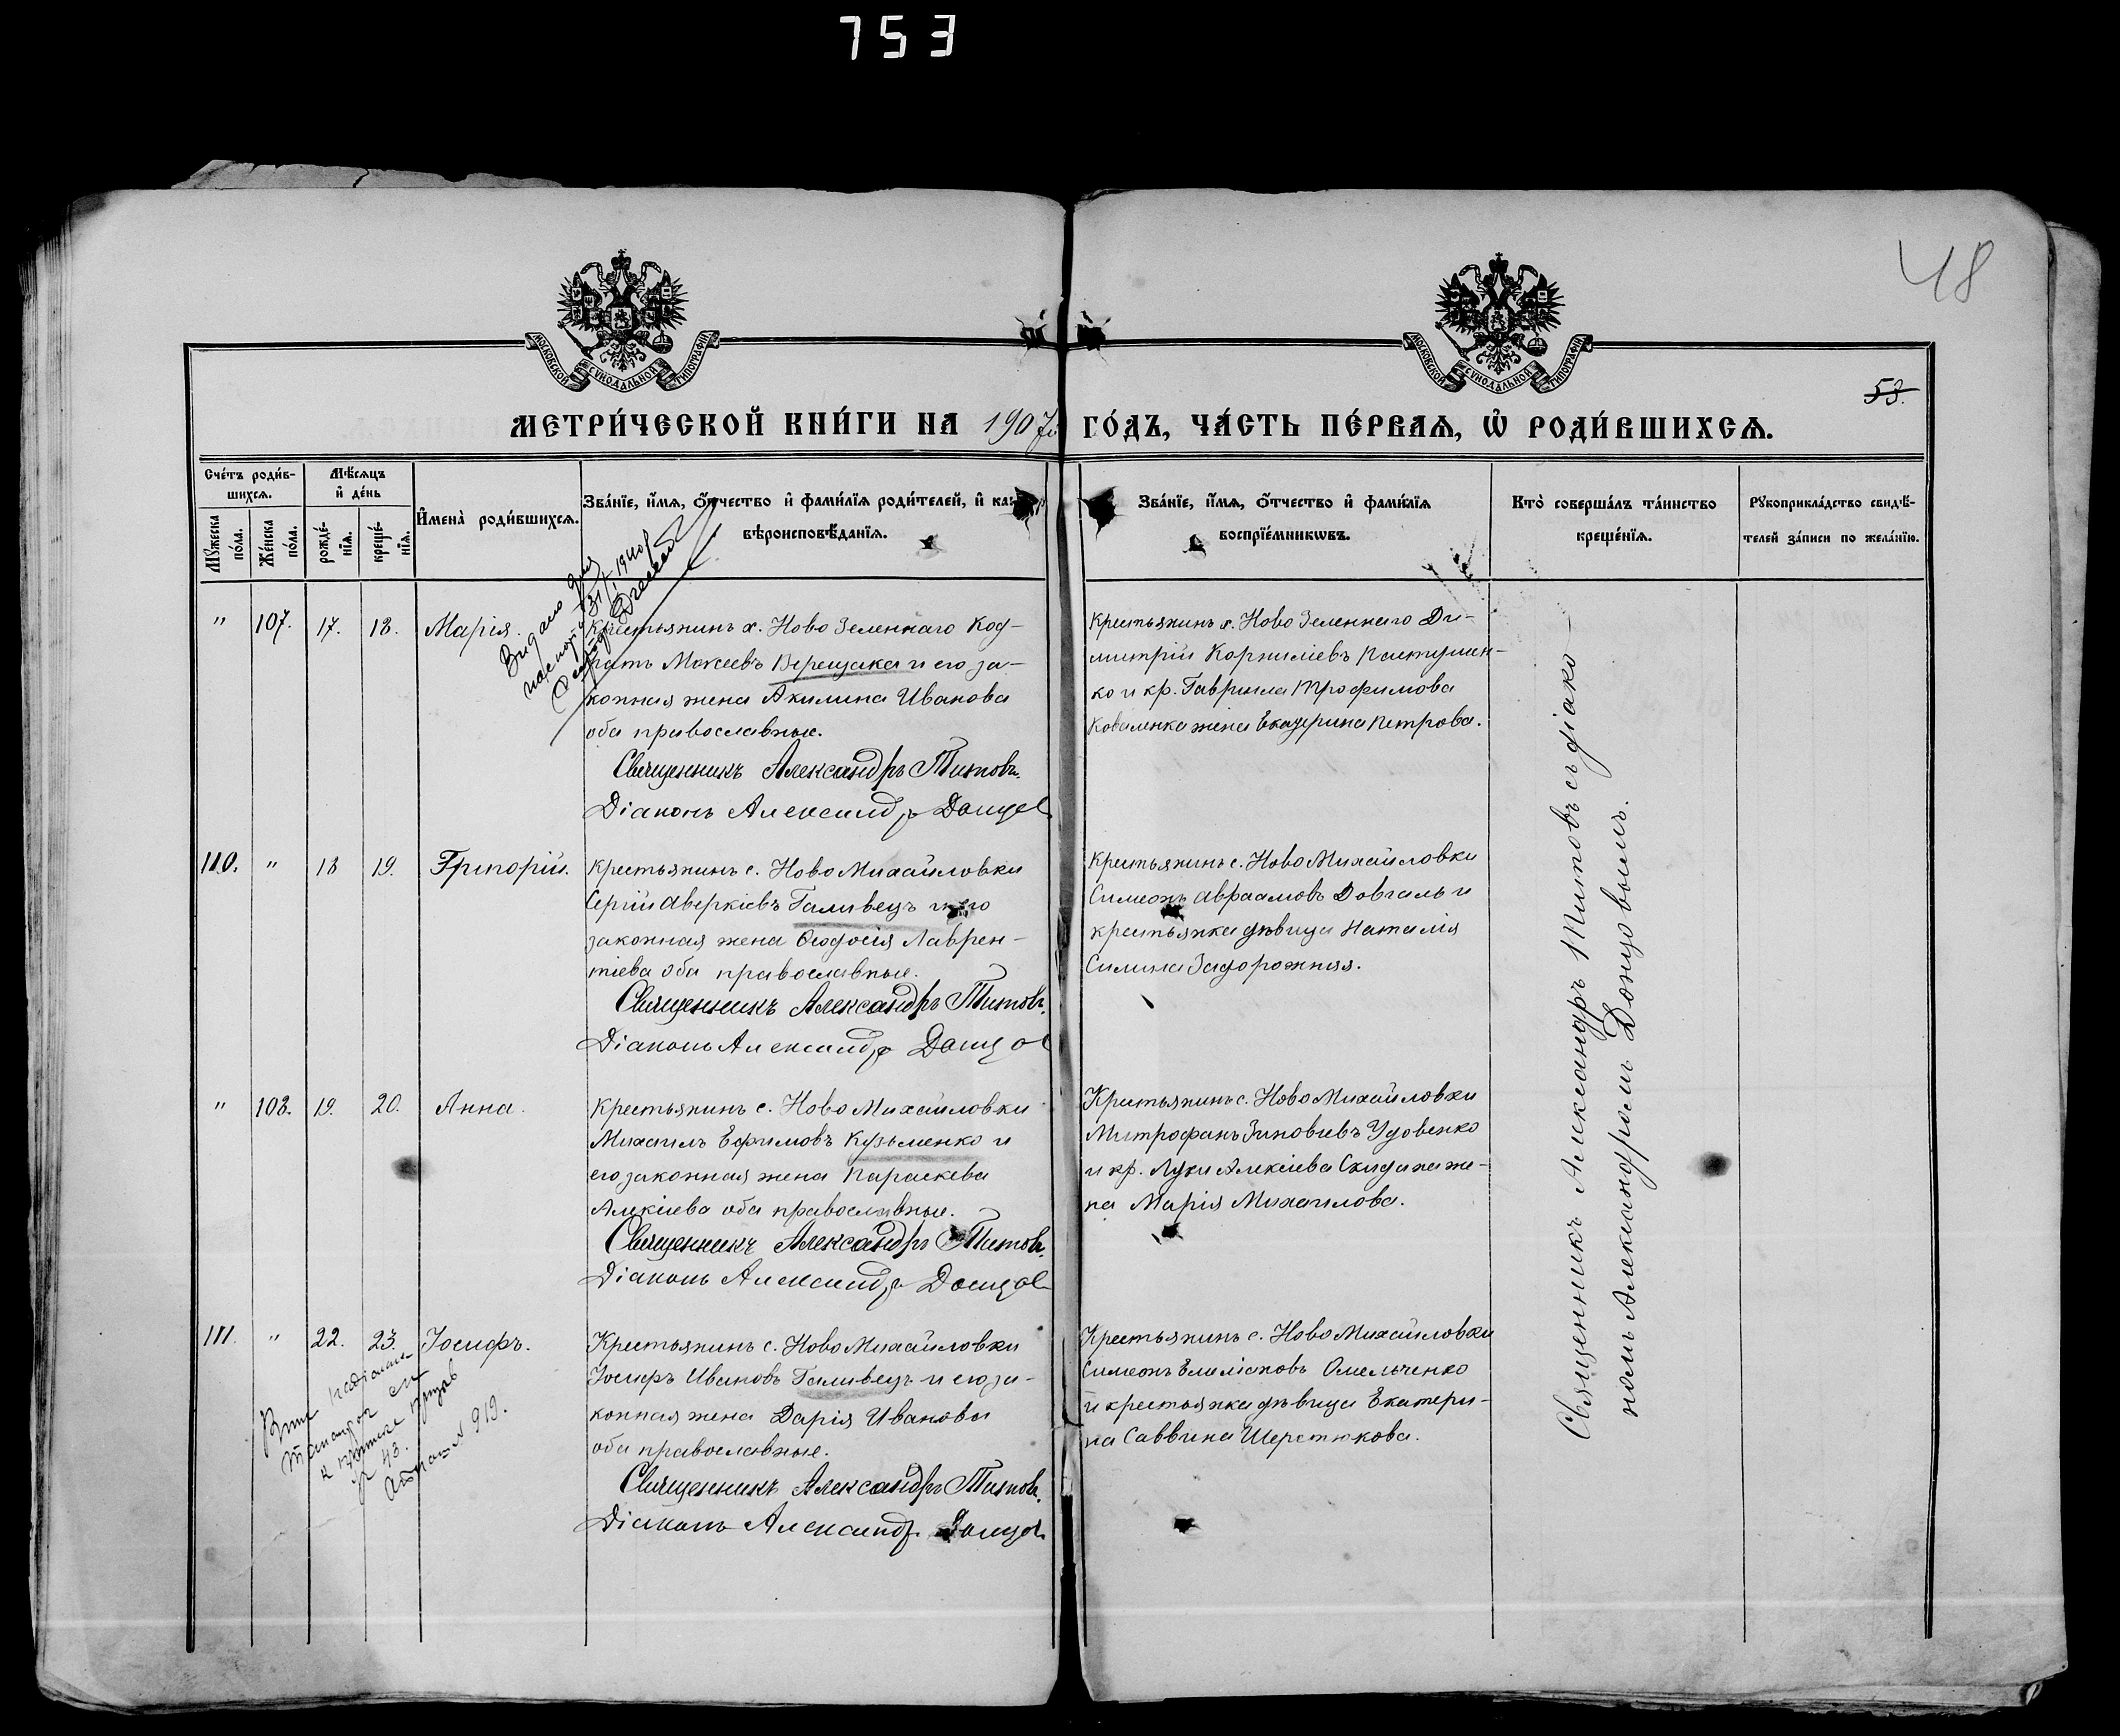 753
48
53.
МОСКОВСКОЙ СУНОДАЛЬНОЙ ТИПОГРАФІИ
МОСКОВСКОЙ СУНОДАЛЬНОЙ ТИПОГРАФІИ
МЕТРИ́ЧЕСКОЙ КНИ́ГИ НА 1907й ГО́ДЪ, ЧА́СТЬ ПЕ́РВАѦ, Ѡ҆ РОДИ́ВШИХСѦ.
Сче́тъ роди́в-
шихсѧ.
Мꙋ́жеска по́ла.
Же́нска по́ла.
Мѣ́сѧцъ
и҆ де́нь
рожде́-
нїѧ.
креще́-
нїѧ.
И҆мена̀ роди́вшихсѧ.
Зва́нїе, и҆́мѧ, ѻ҆́тчество и҆ фами́лїѧ роди́телей, и҆
вѣроисповѣ́данїѧ.
Зва́нїе, и҆́мѧ, ѻ҆́тчество и҆ фами́лїѧ
воспрїе́мникѡвъ.
Кто̀ соверша́лъ та́инство
креще́нїѧ.
Рꙋкоприкла́дство свидѣ́-
телей за́писи по жела́нїю.
" 107. 17. 18. Марія.
Крестьянинъ х. Ново Зеленнаго Код-
ратъ Мокеевъ Верещака и его за-
конная жена Акилина Иванова
оба православные.
Священникъ Александръ Титовъ.
Діаконъ Александръ Донцов
Крестьянинъ х. Ново Зеленнаго Ди-
митрій Корниліевъ Пантушен-
ко и кр. Гавриила Трофимова
Коваленка жена Екатерина Петрова.
110. " 18 19. Григорій.
Крестьянинъ с. Ново Михайловки
Сергій Аверкіевъ Галивецъ и его
законная жена Ѳеодосія Лаврен-
тіева оба православные.
Священникъ Александръ Титовъ.
Діаконъ Александръ Донцов
Крестьянинъ с. Ново Михайловки
Симеонъ Авраамовъ Довгаль и
крестьянка дѣвица Наталія
Силина Задорожная.
" 108. 19. 20. Анна.
Крестьянинъ с. Ново Михайловки
Михаилъ Ефимовъ Кузьменко и
его законная жена Параскева
Алексіева оба православные.
Священникъ Александръ Титовъ.
Діаконъ Александръ Донцов
Крестьянинъ с. Ново Михайловки
Митрофанъ Зиновіевъ Удовенко
и кр. Луки Алексіева Скидана же-
на Марія Михаилова.
111. " 22. 23. Іосифъ.
Крестьянинъ с. Ново Михайловки
Іосифъ Ивановъ Галивецъ и его за-
конная жена Дарія Иванова
оба православные.
Священникъ Александръ Титовъ.
Діаконъ Александръ Донцов
Крестьянинъ с. Ново Михайловки
Симеонъ Емеліановъ Омельченко
и крестьянка дѣвица Екатери-
на Саввина Шерстюкова.
Священникъ Александръ Титовъ съ діако-
номъ Александромъ Донцовымъ.